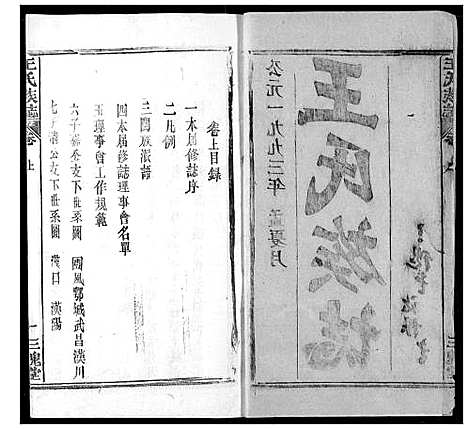 王氏族誌
公元一九九三年 孟夏月
三槐堂
卷上目錄
一本屆修誌序
二凡例
三閤族派語
四本屆修誌理事會名單
五理事會工作規範
六子 公支下世系圖 團風鄂城武昌漢川
七 公支下世系圖 漢口 漢陽
王氏族誌
卷上
一 三槐堂